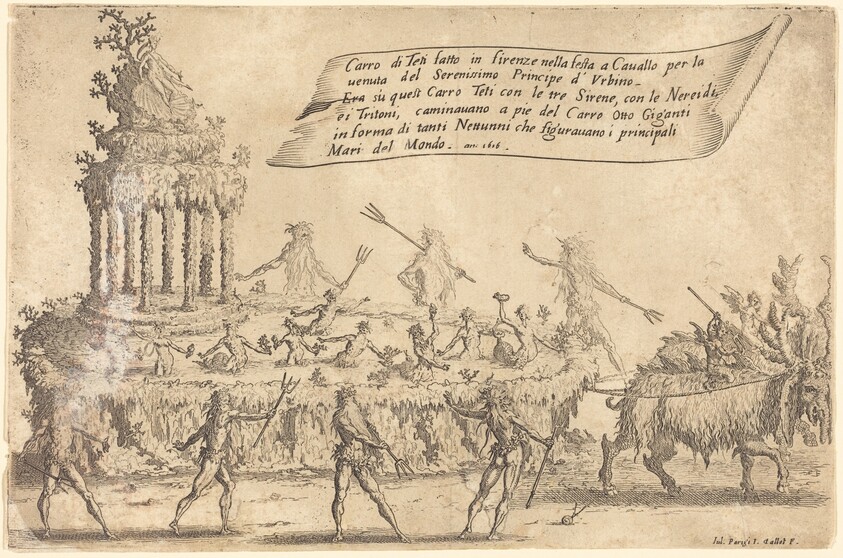 Carro di Teti fatto in firenze nella festa a Cauallo per la
uenuta del Serenissimo Principe d' Vrbino.
Era sù quest Carro Teti con le tre Sirene, con le Nereidi,
e i Tritoni, caminauano a pie del Carro Otto Giganti
in forma di tanti Nettunni che figurauano i principali
Mari del Mondo. an: 1616.
Iul. Parigi I. Callot F.